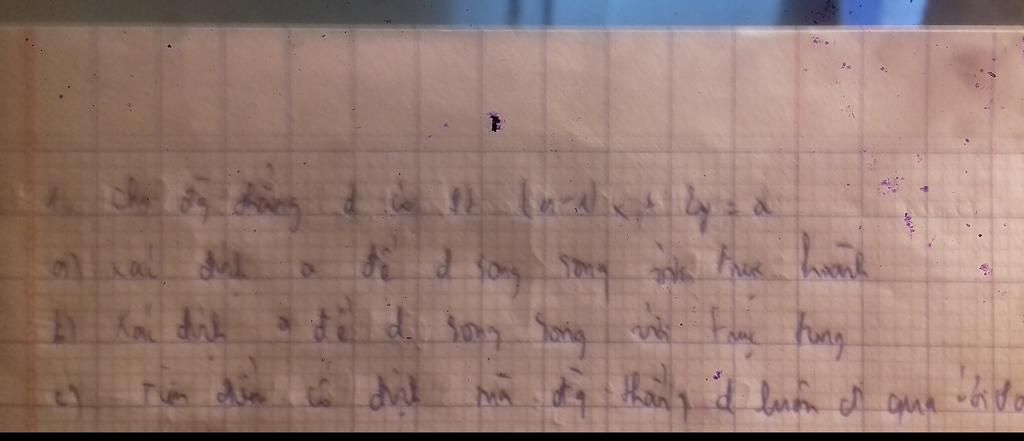 1. Cho đg thẳng d có pt (a-1)x + 2y = a
a) xác định a để d song song với trục hoành
b) xác định a để d song song với trục tung
c) Tìm điểm cố định mà đg thẳng d luôn đi qua với